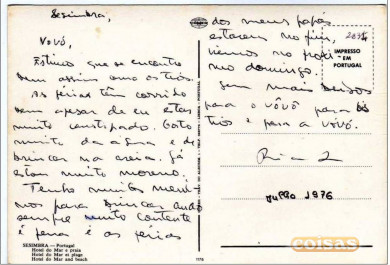 Sesimbra,
Vovó,
Estimo que se encontre
bem assim como os tios.
As férias têm corrido
bem apesar de eu estar
muito constipado. Gosto
muito da água e de
brincar na areia. Já
estou muito moreno.
Tenho muitos meni
nos para brincar ando
sempre muito contente
é pena é as férias
SESIMBRA — Portugal
Hotel do Mar e praia
Hotel do Mar et plage
Hotel do Mar and beach
dos meus papás
estarem no fim,
iremos no próxi
mo domingo.
Sem mais beijos
para o vôvô para os
tios e para a vovó.
Julho 1976
IMPRESSO
EM
PORTUGAL
coisas